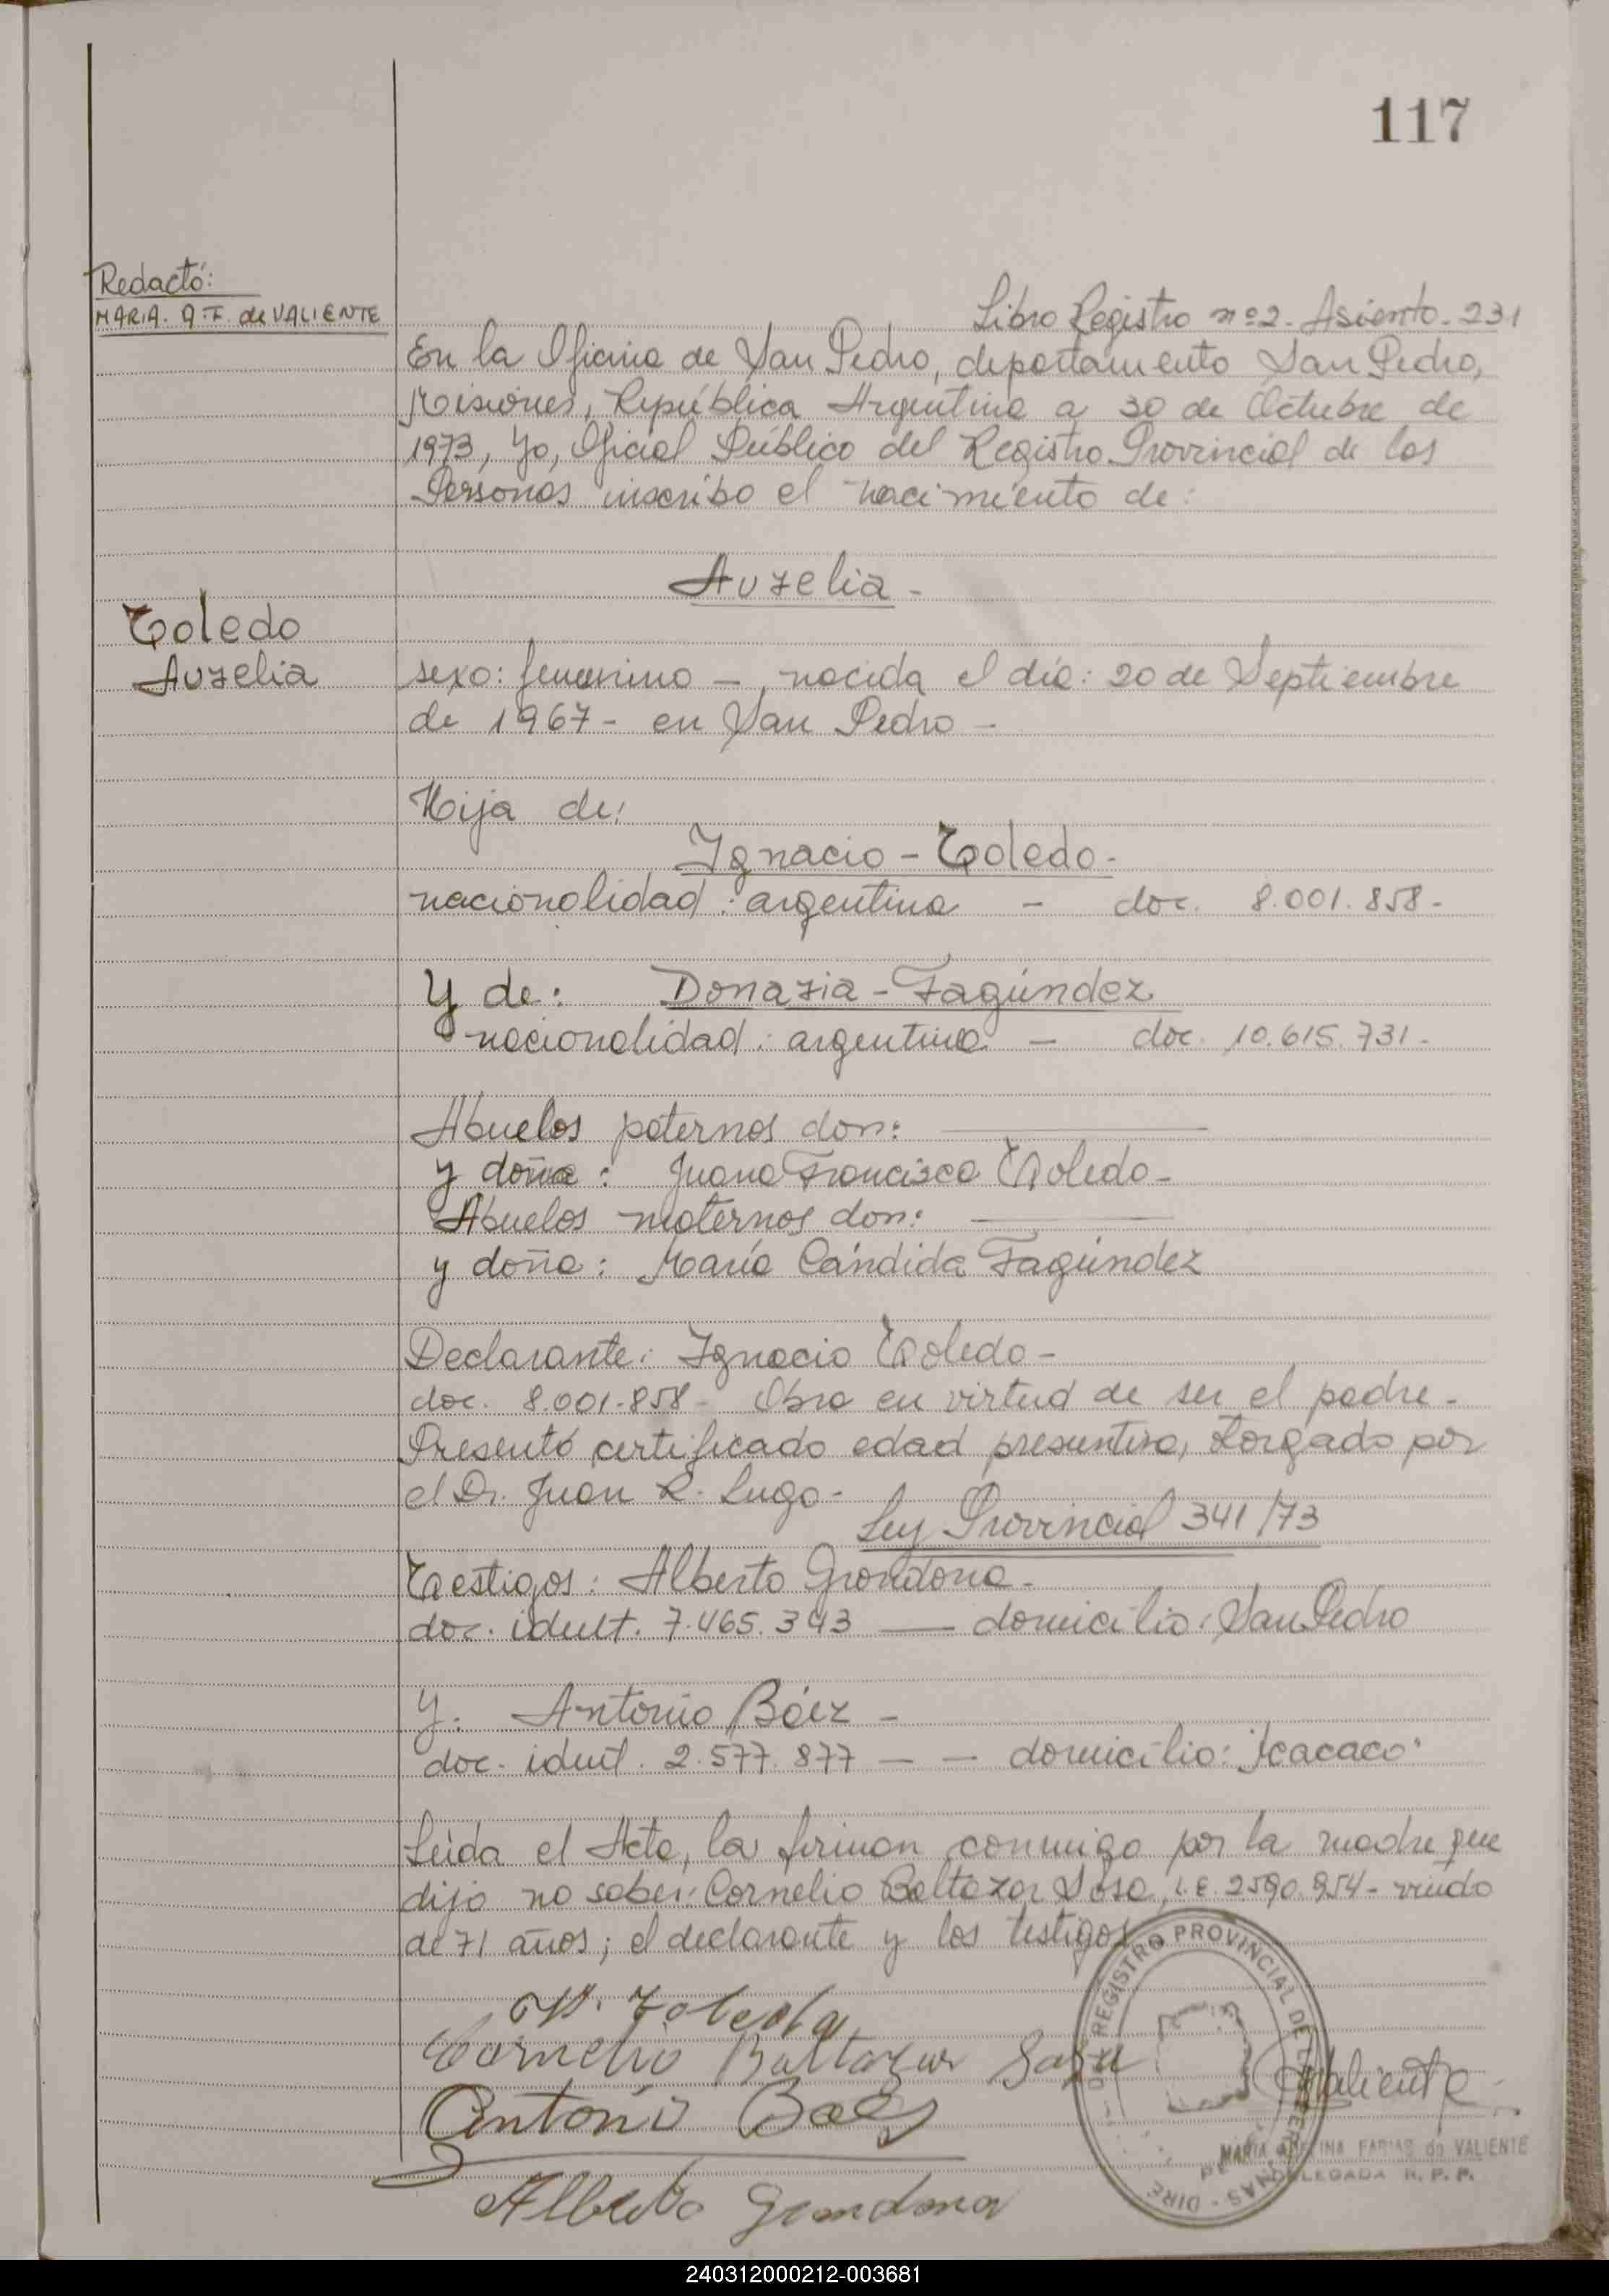 117
Redactó:
MARIA. A. F. de VALIENTE
Libro Registro nº 2. Asiento. 231
En la Oficina de San Pedro, departamento San Pedro,
Misiones, República Argentina a 30 de Octubre de
1973, Yo, Oficial Público del Registro Provincial de las
Personas inscribo el nacimiento de:
Aurelia -
Toledo
Aurelia
sexo: femenino - , nacida el día: 20 de Septiembre
de 1967 - en San Pedro -
Hija de:
Ignacio - Toledo -
nacionalidad: argentina - doc. 8.001.858 -
Y de: Donaria - Fagúndez
nacionalidad: argentina - doc. 10.615.731 -
Abuelos paternos don: ———
y doña: Juana Francisca Toledo -
Abuelos maternos don: ———
y doña: María Cándida Fagúndez
Declarante: Ignacio Toledo -
doc. 8.001.858 - Obra en virtud de ser el padre -
Presentó certificado edad presuntiva, otorgado por
el Dr. Juan R. Lugo -
Ley Provincial 341/73
Testigos: Alberto Grondona -
doc. ident. 7.465.343 — domicilio: San Pedro
y: Antonio Báez -
doc. ident. 2.577.877 — — domicilio:
Leída el Acta, la firman conmigo por la madre que
dijo no saber: Cornelio Baltazar Sosa, L.E. 2.590.954 - viudo
de 71 años; el declarante y los testigos
Toledo
Cornelio Baltazar Sosa
Antonio Baes
Alberto Grondona
Valiente
REGISTRO PROVINCIAL DE LAS PERSONAS
MARIA FARIAS de VALIENTE
DELEGADA R. P. P.
240312000212-003681